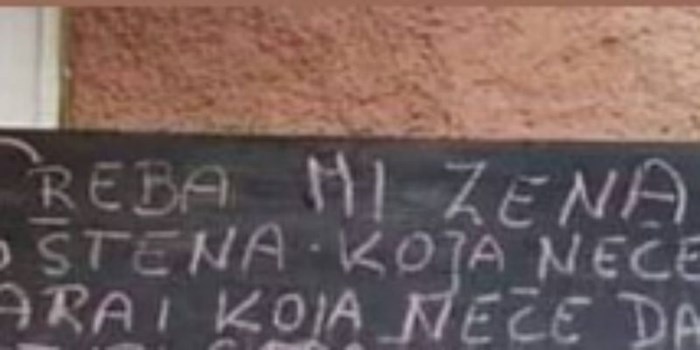 REBA MI ZENA
ŠTENA. KOJA NEĆE
ARA I KOJA NEČE DA